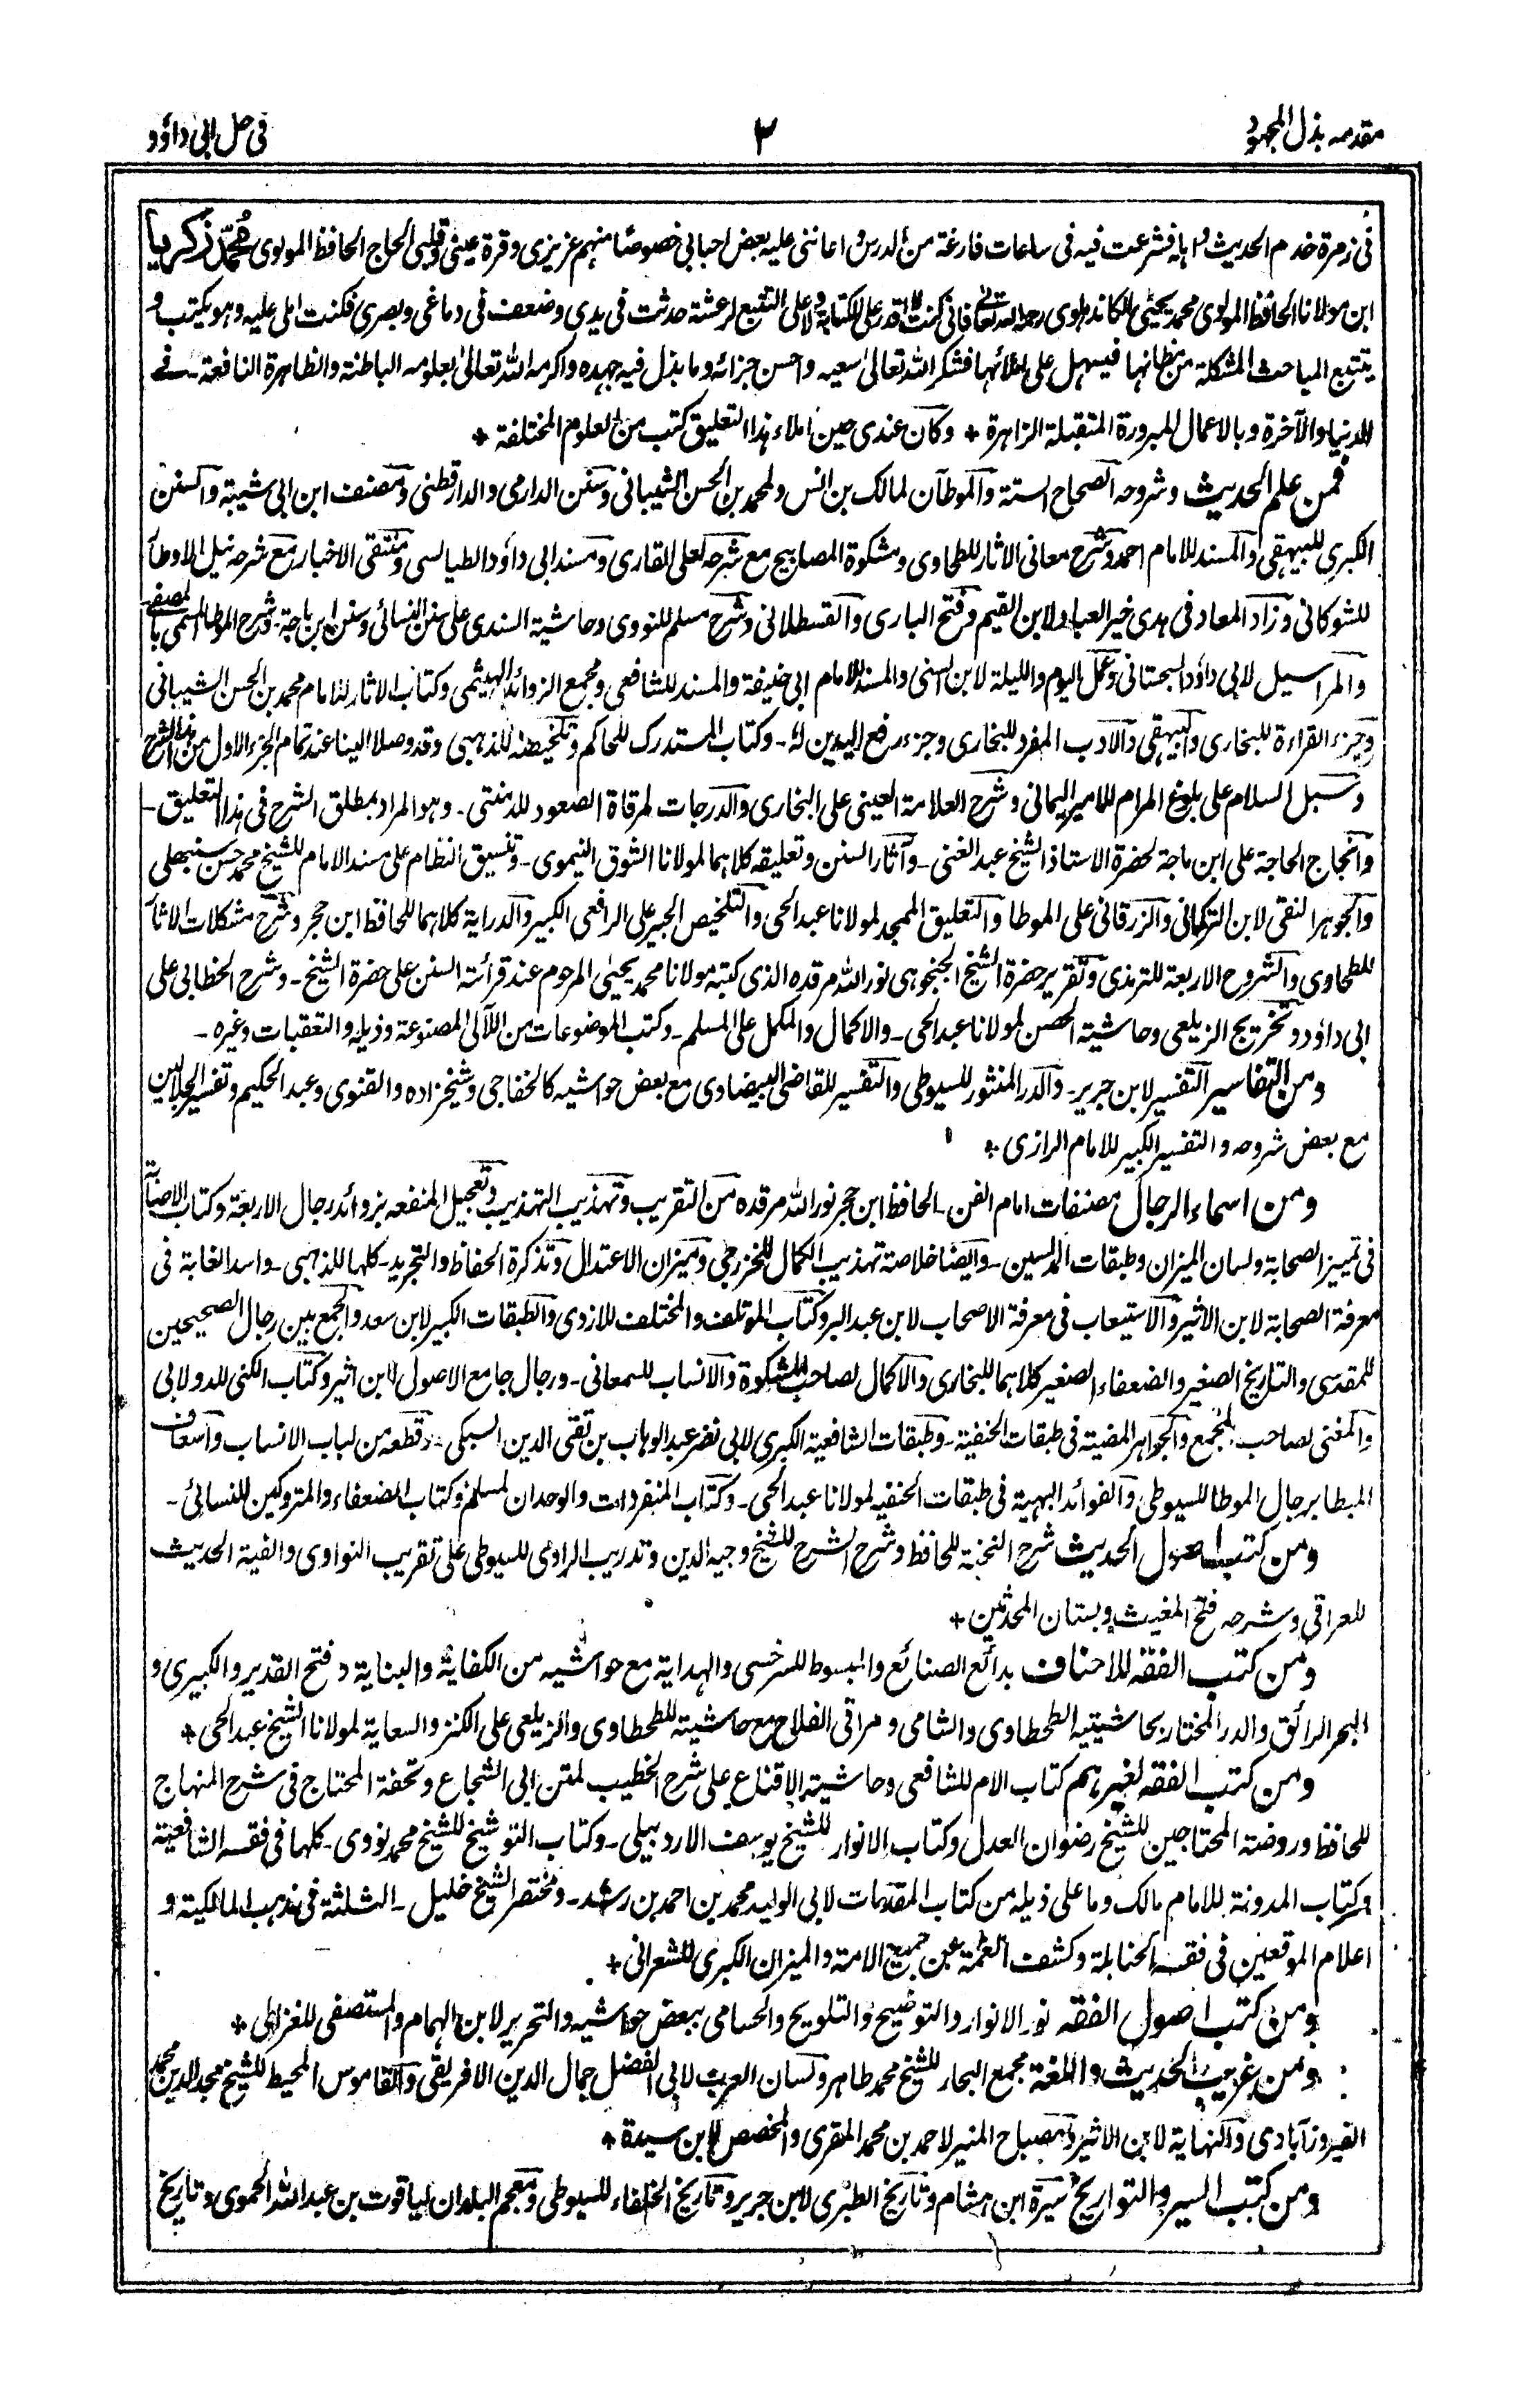 مقدمه بذل المجهود
٣
فی حل ابی داؤد
فی زمرة خدم الحدیث و اہلہ فشرعت فیه فی ساعات فارغة من الدرس و اعاننی علیه بعض احبابی خصوصا منہم عزیزی و قرة عینی و قلبی الحاج الحافظ المولوی محمد زکریا
ابن مولانا الحافظ المولوی محمد یحیٰی الکاندہلوی رحمہ اللہ تعالیٰ فانی کنت لا اقدر علی الکتابة ولا علی التتبع لرعشة حدثت فی یدی و ضعف فی دماغی و بصری فکنت املی علیه و ہو یکتب و
یتتبع المباحث المشکلة من مظانہا فیسہل علی املائہا فشکر اللہ تعالیٰ سعیہ و احسن جزائہ و ما بذل فیه جہدہ و اکرمہ اللہ تعالیٰ بعلومہ الباطنة والظاہرة النافعة۔ فے
الدنیا والآخرة و بالاعمال المبرورة المتقبلة الزاہرة * وکان عندی حین املاء ہذا التعلیق کتب من العلوم المختلفة *
فمن علم الحدیث و شروحہ الصحاح الستة والموطآن لمالک بن انس ولمحمد بن الحسن الشیبانی و سنن الدارمی والدارقطنی و مصنف ابن ابی شیبة والسنن
الکبری للبیہقی والمسند للامام احمد و شرح معانی الاثار للطحاوی و مشکوة المصابیح مع شرحہ لعلی القاری و مسند ابی داؤد الطیالسی و منتقی الاخبار مع شرحہ نیل الاوطا
للشوکانی و زاد المعاد فی ہدی خیر العباد لابن القیم و فتح الباری والقسطلانی و شرح مسلم للنووی و حاشیة السندی علی سنن النسائی و سنن ابن ماجة۔ و شرح الموطا المسمی بالمصفے
والمراسیل لابی داؤد السجستانی و عمل الیوم واللیلة لابن السنی والمسند للامام ابی حنیفة والمسند للشافعی و مجمع الزوائد للہیثمی و کتاب الاثار للامام محمد بن الحسن الشیبانی
و جزء القراءة للبخاری والبیہقی والادب المفرد للبخاری و جزء رفع الیدین لہٗ۔ و کتاب المستدرک للحاکم و تلخیصہ للذہبی و قد وصلا الینا عند تمام الجزء الاول من ہذا الشرح
و سبل السلام علی بلوغ المرام للامیر الیمانی و شرح العلامة العینی علی البخاری والدرجات لمرقاة الصعود للدمنتی۔ و ہو المراد بمطلق الشرح فی ہذا التعلیق۔
وانجاح الحاجة علی ابن ماجة لحضرة الاستاذ الشیخ عبد الغنی۔ و آثار السنن و تعلیقہ کلاہما لمولانا الشوق النیموی۔ و تنسیق النظام علی مسند الامام للشیخ محمد حسن سنبھلی
والجوہر النقی لابن الترکمانی والزرقانی علی الموطا والتعلیق الممجد لمولانا عبد الحی والتلخیص الحبیر علی الرافعی الکبیر والدرایة کلاہما للحافظ ابن حجر و شرح مشکلات الاثار
للطحاوی والشروح الاربعة للترمذی و تقریر حضرة الشیخ الجنجوہی نور اللہ مرقدہ الذی کتبہ مولانا محمد یحیٰی المرحوم عند قرائة السنن علی حضرة الشیخ۔ و شرح الخطابی علی
ابی داؤد و تخریج الزیلعی و حاشیة الحصن لمولانا عبد الحی۔ والاکمال والمکمل علی المسلم۔ و کتب الموضوعات من اللآلی المصنوعة و ذیلہ والتعقبات وغیرہ۔
ومن التفاسیر التفسیر لابن جریر۔ والدر المنثور للسیوطی والتفسیر للقاضی البیضاوی مع بعض حواشیہ کالخفاجی و شیخ زادہ والقنوی و عبد الحکیم و تفسیر الجلالین
مع بعض شروحہ و التفسیر الکبیر للامام الرازی *
ومن اسماء الرجال مصنفات امام الفن۔ الحافظ ابن حجر نور اللہ مرقدہ من التقریب و تہذیب التہذیب و تعجیل المنفعہ بزوائد رجال الاربعة و کتاب الاصابة
فی تمییز الصحابة و لسان المیزان و طبقات المدلسین۔ و ایضا خلاصة تہذیب الکمال للخزرجی و میزان الاعتدال و تذکرة الحفاظ والتجرید۔ کلہا للذہبی۔ واسد الغابة فی
معرفة الصحابة لابن الاثیر والاستیعاب فی معرفة الاصحاب لابن عبد البر و کتاب الموتلف والمختلف للازدی والطبقات الکبیر لابن سعد والجمع بین رجال الصحیحین
للمقدسی والتاریخ الصغیر والضعفاء الصغیر کلاہما للبخاری والاکمال لصاحب المشکوة والانساب للسمعانی۔ و رجال جامع الاصول لابن اثیر و کتاب الکنی للدولابی
والمغنی لصاحب المجمع والجواہر المضیة فی طبقات الحنفیة۔ و طبقات الشافعیة الکبری لابی نصر عبد الوہاب بن تقی الدین السبکی۔ و قطعہ من لباب الانساب واسعاف
المبطا برجال الموطا للسیوطی والفوائد البہیة فی طبقات الحنفیہ لمولانا عبد الحی۔ و کتاب المنفردات والوحدان لمسلم و کتاب الضعفاء والمتروکین للنسائی۔
ومن کتب اصول الحدیث شرح النخبة للحافظ و شرح الشرح للشیخ وجیہ الدین و تدریب الراوی للسیوطی علی تقریب النواوی والفیة الحدیث
للعراقی و شرحہ فتح المغیث و بستان المحدثین *
ومن کتب الفقہ للاحناف بدائع الصنائع والمبسوط للسرخسی والہدایة مع حواشیہ من الکفایة والبنایة و فتح القدیر والکبیری و
البحر الرائق والدر المختار بحاشیتیہ الطحطاوی والشامی و مراقی الفلاح مع حاشیتہ للطحطاوی والزیلعی علی الکنز والسعایة لمولانا الشیخ عبد الحی *
ومن کتب الفقہ لغیرہم کتاب الام للشافعی و حاشیة الاقناع علی شرح الخطیب لمتن ابی الشجاع و تحفة المحتاج فی شرح المنہاج
للحافظ و روضة المحتاجین للشیخ رضوان العدل و کتاب الانوار للشیخ یوسف الاردبیلی۔ و کتاب التوشیخ للشیخ محمد نووی۔ کلہا فی فقہ الشافعیة
و کتاب المدونة للامام مالک و ما علی ذیلہ من کتاب المقدمات لابی الولید محمد بن احمد بن رشد۔ و مختصر الشیخ خلیل۔ الثلثة فی مذہب المالکیة و
اعلام الموقعین فی فقہ الحنابلة و کشف الغمة عن جمیع الامة والمیزان الکبری للشعرانی *
ومن کتب اصول الفقہ نور الانوار والتوضیح والتلویح والحسامی ببعض حواشیہ والتحریر لابن الہمام والمستصفی للغزالی *
ومن غریب الحدیث واللغة مجمع البحار للشیخ محمد طاہر و لسان العرب لابی الفضل جمال الدین الافریقی والقاموس المحیط للشیخ مجد الدین محمد
الفیروزآبادی والنہایة لابن الاثیر والمصباح المنیر لاحمد بن محمد المقری والمخصص لابن سیدة *
ومن کتب السیر والتواریخ سیرة ابن ہشام و تاریخ الطبری لابن جریر و تاریخ الخلفاء للسیوطی و معجم البلدان لیاقوت بن عبد اللہ الحموی و تاریخ